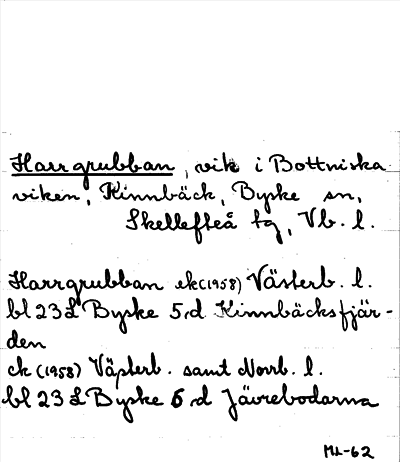 Harrgrubban, vik i Bottniska
viken, Kinnbäck, Byske sn,
Skellefteå tg, Vb. l.
Harrgrubban ek (1958) Västerb. l.
bl 23 L Byske 5 d Kinnbäcksfjär-
den
ek (1958) Västerb. samt Norrb. l.
bl 23 L Byske 6 d Jävrebodarna
-62